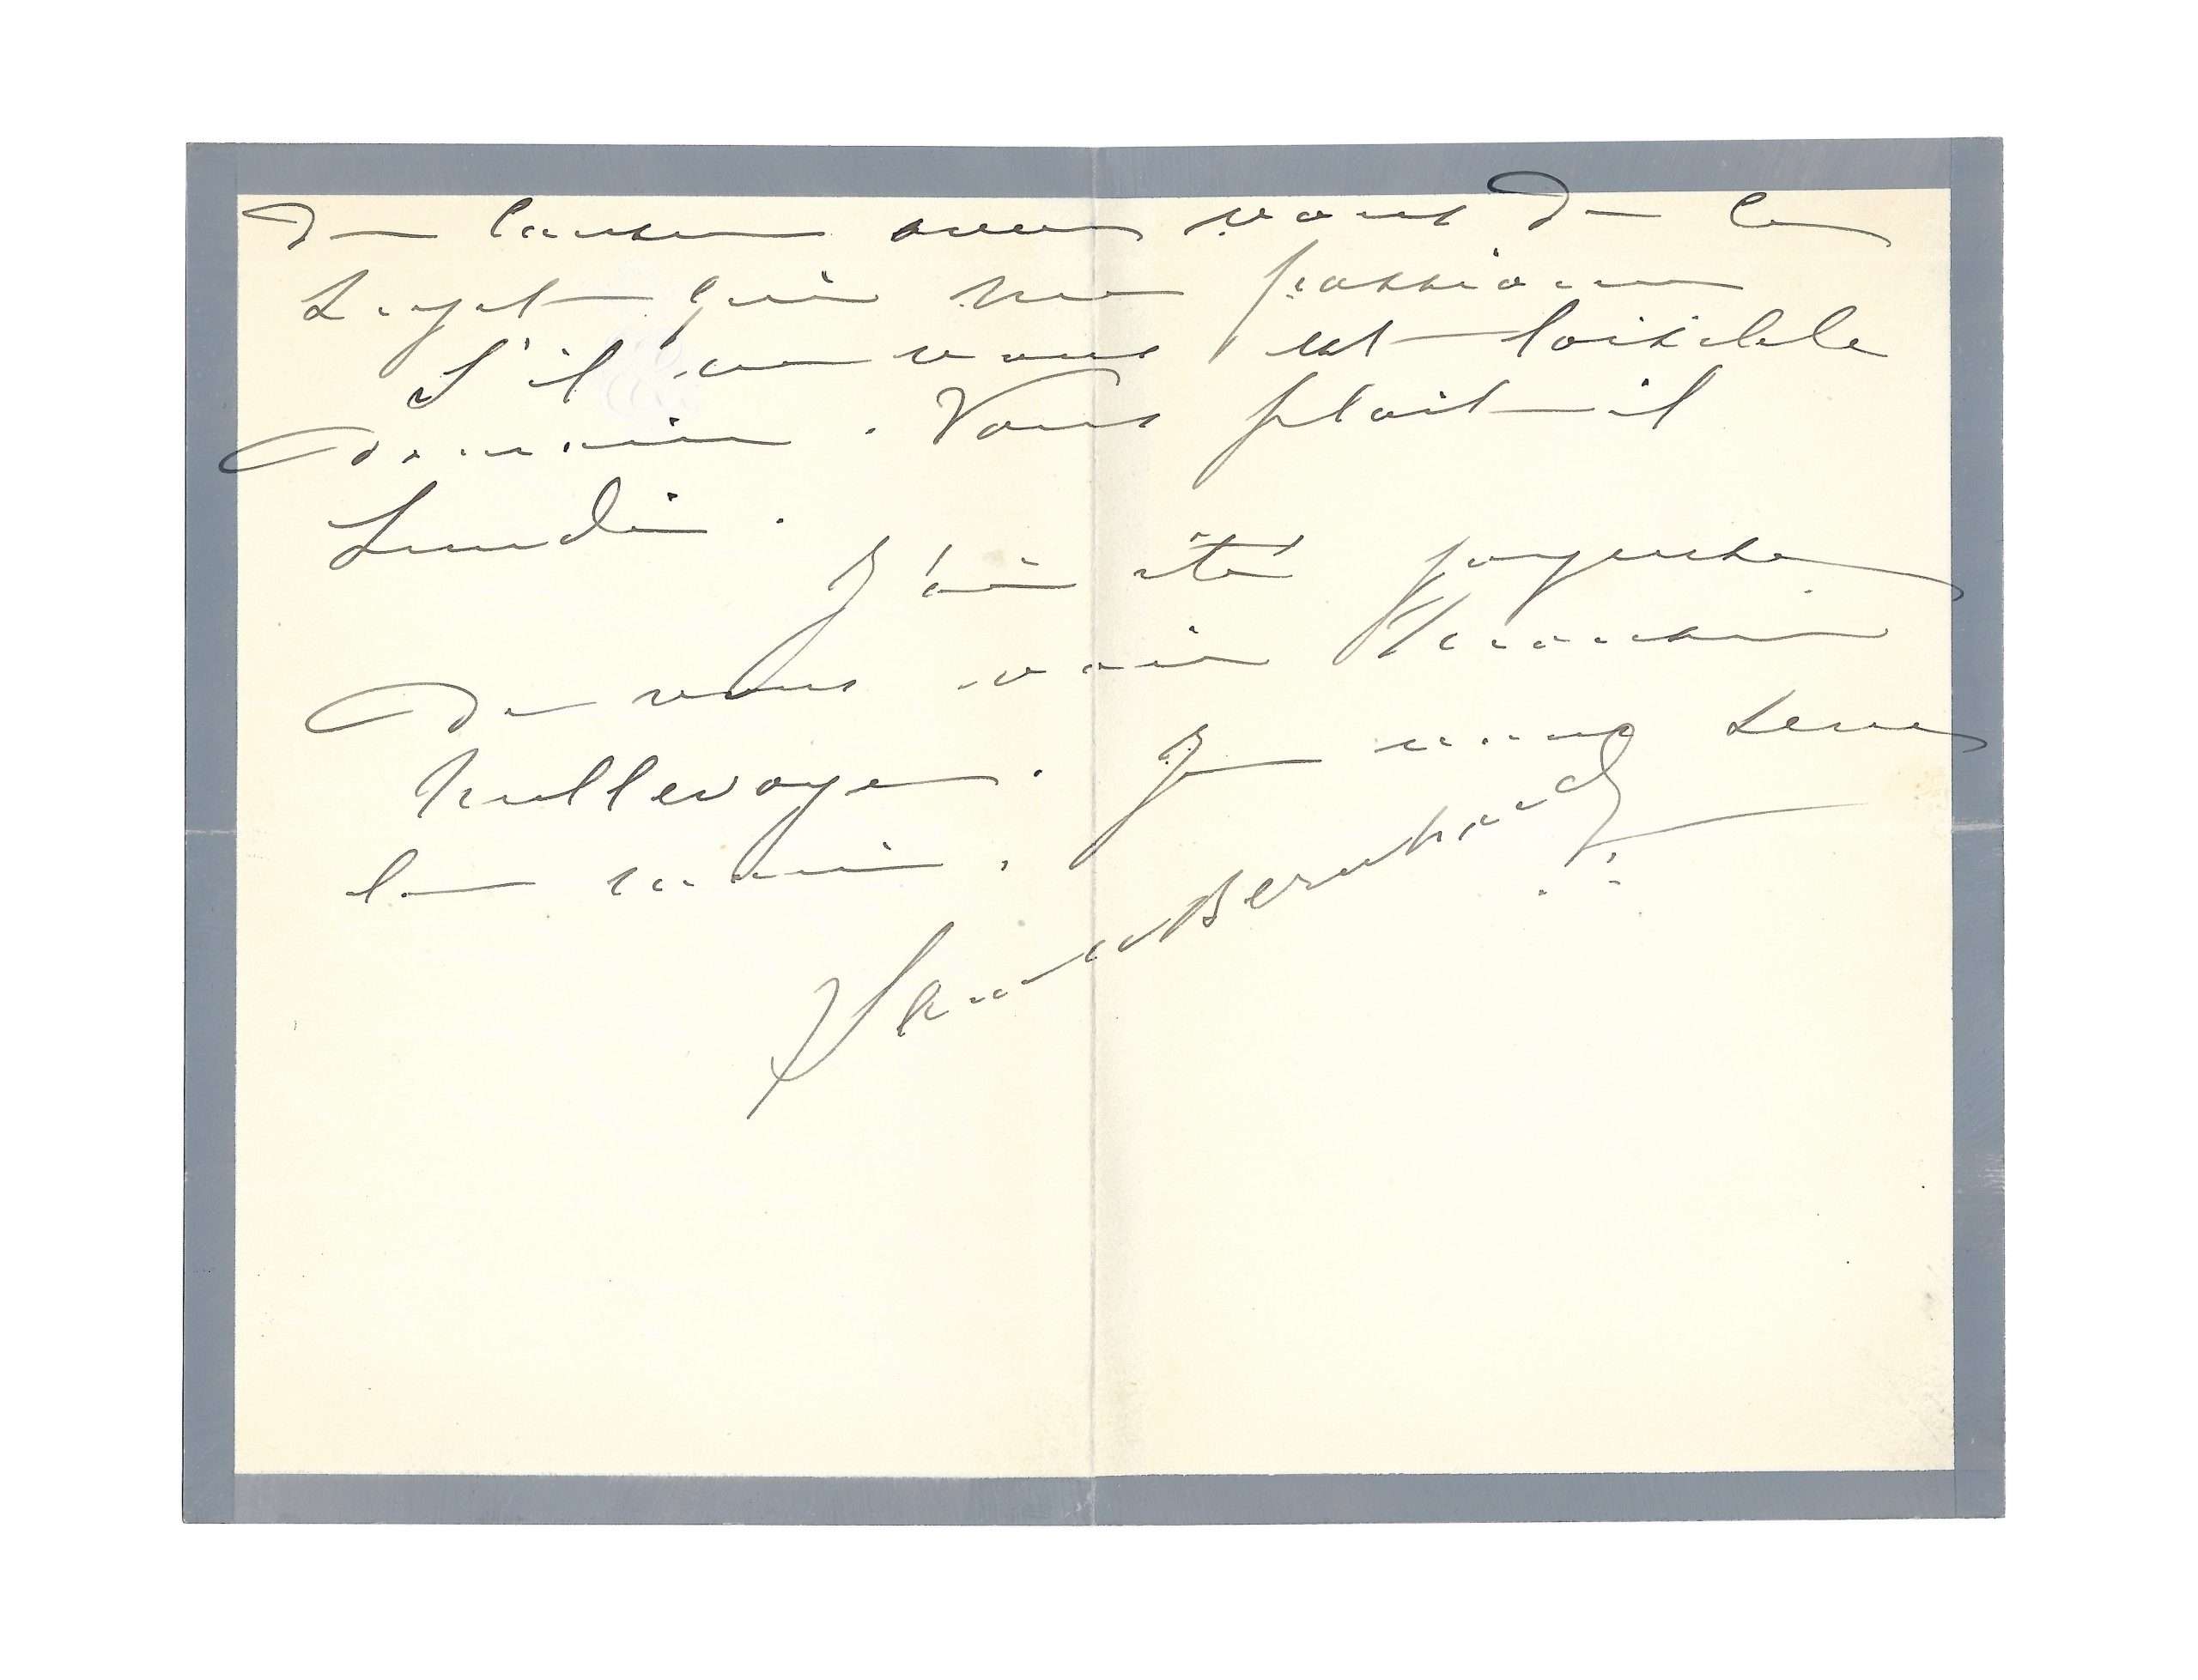 De causer avec vous De ce
Sujet qui me passionne
S'il vous est loisible
Demain. Vous plait-il
Lundi.
J'ai été joyeuse
De vous voir Monsieur
Millevoye. Je vous serre
la main.
Sarah Bernhardt